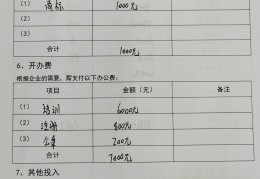 (1) 商标 1000元
(2)
(3)
合计 1000元
6、开办费
根据企业的需要，需支付以下办公费：
项目 金额（元） 备注
(1) 培训 6000元
(2) 注册 800元
(3) 公章 200元
合计 7000元
7、其他投入